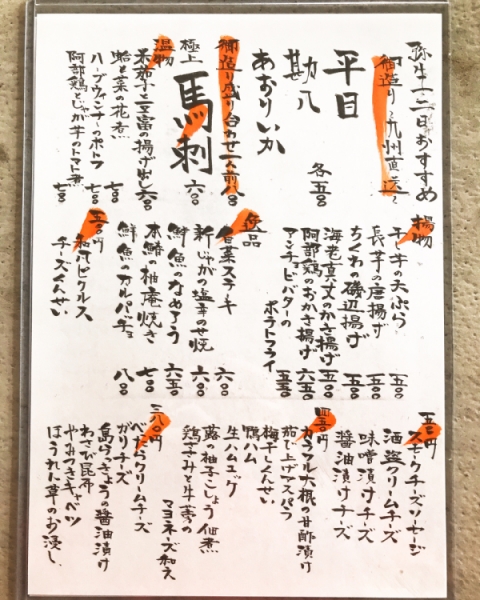 弥生十二日おすすめ
御造り〜九州直送〜
平目
勘八
あおりいか
各五〇
御造り盛り合わせ一人前 八〇
極上
馬刺
六〇
温物
米茄子と豆富の揚げ出し 六〇
蛤と菜の花煮 七〇
ハーブウインナーのポトフ 七〇
阿部鶏とじゃが芋のトマト煮 七〇
揚物
干し芋の天ぷら 五〇
長芋の唐揚げ 五〇
ちくわの磯辺揚げ 五〇
海老真丈のかさ揚げ 五〇
阿部鶏のおかき揚げ 六五〇
アンチョビバターの
ポテトフライ 五五〇
逸品
白菜ステーキ 六〇
新じゃがの塩辛のせ焼 六〇
鮮魚のなめろう 六五〇
本鰆の柚庵焼き 七〇
鮮魚のカルパッチョ 八〇
五〇円
和風ピクルス
チーズくんせい
五〇円
スモークチーズソーセージ
酒盗クリームチーズ
味噌漬けチーズ
醤油漬けチーズ
四五〇円
カラフル大根の甘酢漬け
茹で上げアスパラ
梅干しくんせい
鴨ハム
生ハムユッケ
蕗の柚子こしょう佃煮
鶏ささみと牛蒡の
マヨネーズ和え
三八〇円
べったらクリームチーズ
がりチーズ
島らっきょうの醤油漬け
わさび昆布
やみつきキャベツ
ほうれん草のお浸し